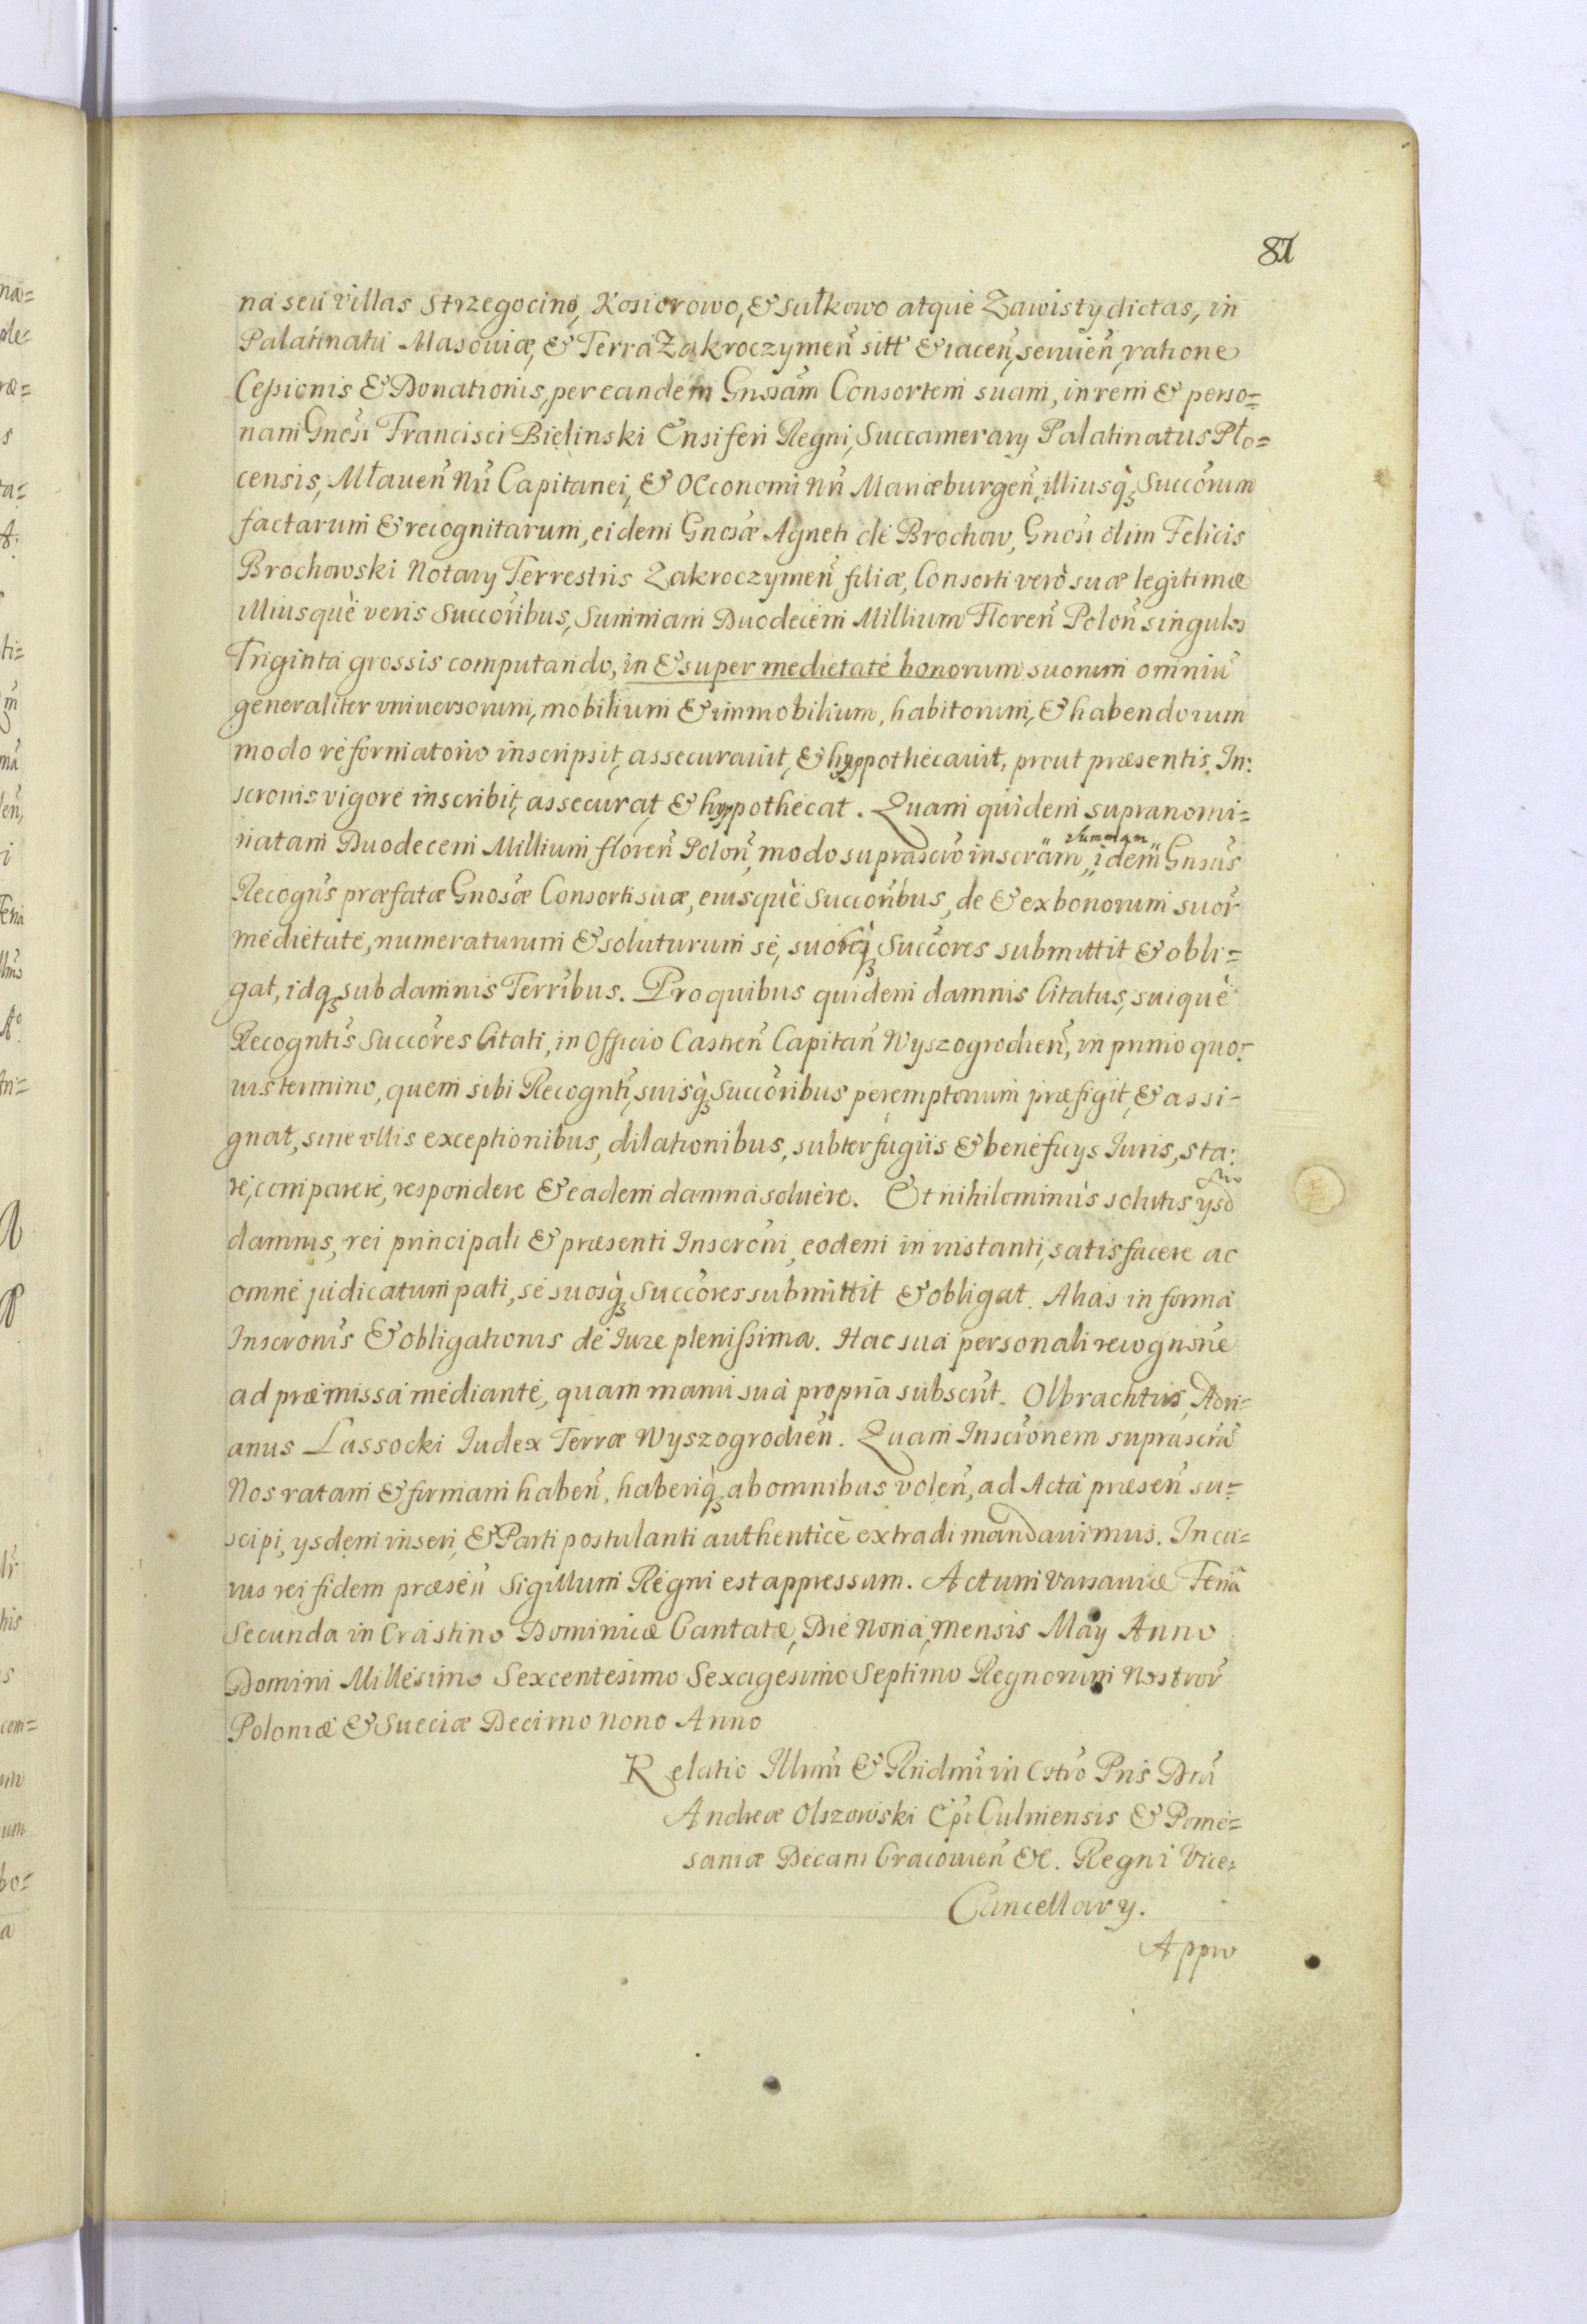 81
na seu villas Strzegocino, Kosiorowo, & Sułkowo atque Zawisty dictas, in
Palatinatu Masoviæ, & Terra Zakroczymeñ sitt' & iaceñ, servieñ, ratione
Cessionis & Donationis, per eandem Gnosam Consortem suam, in rem & perso=
nam Gnosi Francisci Bielinski Ensiferi Regni, Succamerary Palatinatus Pło=
censis, Mlaveñ Nñ Capitanei, & Oeconomi Nñ Mariæburgeñ, illiusq; Succorum
factarum & recognitarum, eidem Gnosæ Agneti de Brochow, Gnosi olim Felicis
Brochowski Notary Terrestris Zakroczymeñ filiæ, Consorti verò suæ legitimæ
illiusquè veris Succoribus, Summam Duodecim Millium Floreñ Poloñ singulos
Triginta grossis computando, in & super medietate bonorum suorum omniũ
generaliter universorum, mobilium & immobilium, habitorum, & habendorum
modo reformatorio inscripsit, assecuravit, & hyppothecavit, prout præsentis In:
scronis vigore inscribit, assecurat, & hyppothecat. Quam quidem supranomi=
natam Duodecem Millium floreñ Poloñ, modo suprascro inscram „ Summam „ idem Gnsus
Recogns præfatæ Gnosæ Consorti suæ, eiusquè Succoribus, de & ex bonorum suor
medietate, numeraturum & soluturum se, suosq; Succores submittit & obli=
gat, idq; sub damnis Terribus. Pro quibus quidem damnis Citatus, suiquè
Recogntis Succores Citati, in Officio Castreñ Capitañ Wyszogrodieñ, in primo quo=
vis termino, quem sibi Recognti, suisq; Succoribus peremptorium præfigit, & assi=
gnat, sine ullis exceptionibus, dilationibus, subterfugiis & beneficys Iuris, sta:
re, comparere, respondere & eadem damna solvere. Et nihilominùs solutis ysd
damnis, rei principali & præsenti Inscroni, eodem in instanti, satisfacere ac
omne judicatum pati, se suosq; Succores submittit & obligat. Alias in forma
Inscronis & obligationis de Iure plenissima. Hac sua personali recognsne
ad præmissa mediante, quam manu sua propria subscrit. Olbrachtus, Adri=
anus Lassocki Iudex Terræ Wyszogrodieñ. Quam Inscronem suprascrã
Nos ratam & firmam habeñ, haberiq; ab omnibus voleñ, ad Acta præseñ su=
scipi, ysdem inseri, & Parti postulanti authenticè extradi mandavimus. In cu=
ius rei fidem præseñ Sigillum Regni est appressum. Actum Varsaviæ Feria
Secunda in Crastino Dominicæ Cantatæ, Die Nona, Mensis May Anno
Domini Millesimo Sexcentesimo Sexagesimo Septimo Regnorum Nostror
Poloniæ & Sueciæ Decimo Nono Anno
Relatio Illmi & Rndmi in Csto Pris Dni
Andreæ Olszowski Epi Culmensis & Pome=
saniæ Decani Cracovieñ &c. Regni Vice=
Cancellary.
Appro